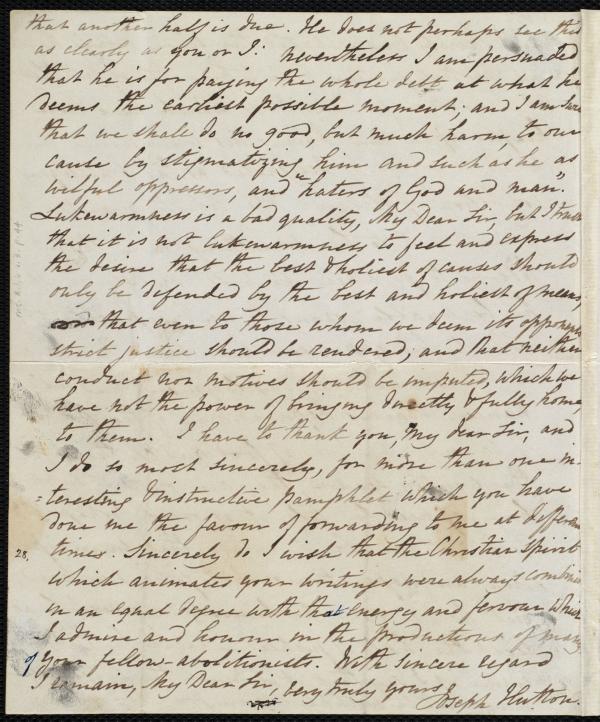 that another half is due. He does not perhaps see this
as clearly as you or I: nevertheless I am persuaded
that he is for paying the whole debt at what he
deems the earliest possible moment; and I am sure
that we shall do no good, but much harm to our
cause by stigmatizing him and such as he as
wilful oppressors, and "haters of God and man".
Lukewarmness is a bad quality, My Dear Sir, but I trust
that it is not lukewarmness to feel and express
the desire that the best & holiest of causes should
only be defended by the best and holiest of means,
that even to those whom we deem its opponents
strict justice should be rendered; and that neither
conduct nor motives should be imputed, which we
have not the power of bringing directly & fully home
to them. I have to thank you, My dear Sir, and
I do so most sincerely, for more than one in-
=teresting & instructive pamphlet which you have
done me the favour of forwarding to me at different
28, times. Sincerely do I wish that the Christian Spirit
which animates your writings were always combined
in an equal degree with that energy and fervour which
I admire and honour in the productions of many
of your fellow-abolitionists. With sincere regard
I remain, My Dear Sir, very truly yours
Joseph Hutton.